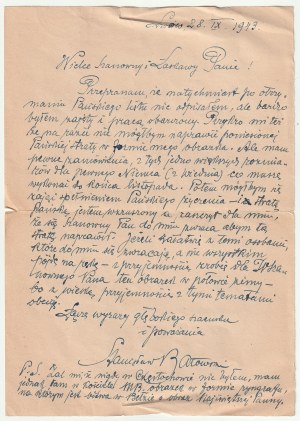 Lwów 28. IX 1943
Wielce Szanowny i Łaskawy Panie!
Przepraszam, że natychmiast po otrzy-
maniu Pańskiego listu nie odpisałem, ale bardzo
byłem zajęty i pracą obarczony. Przykro mi też
że na razie nie mógłbym naprawić poniesionej
Pańskiej straty w formie mego obrazka. Ale mam
pewne zamówienia, z tych jedno większych rozmia-
rów dla pewnego Niemca (z Wiednia) co muszę
wykonać do końca listopada. Potem mógłbym się
zająć spełnieniem Pańskiego życzenia
Pańską jestem wzruszony a zaszczyt dla mnie,
że się Szanowny Pan do mnie zwraca abym tę
stratę naprawił. Jeżeli
które do mnie się zwracają, a nie wszystkim
idę na rękę – z przyjemnością zrobię dla Wsza-
nownego Pana ten obrazek w połowie zimy –
bo z wielką przyjemnością z tymi tematami
obcuję.
Łączę wyrazy głębokiego szacunku
i poważania
Stanisław Batowski
P.S. Żal mi, że nigdy w Częstochowie nie byłem, mam
jednak tam w kościele M.B. obrazek w formie ryngrafu,
na którym jest bitwa w Bełzie a obraz Najświętszej Panny.